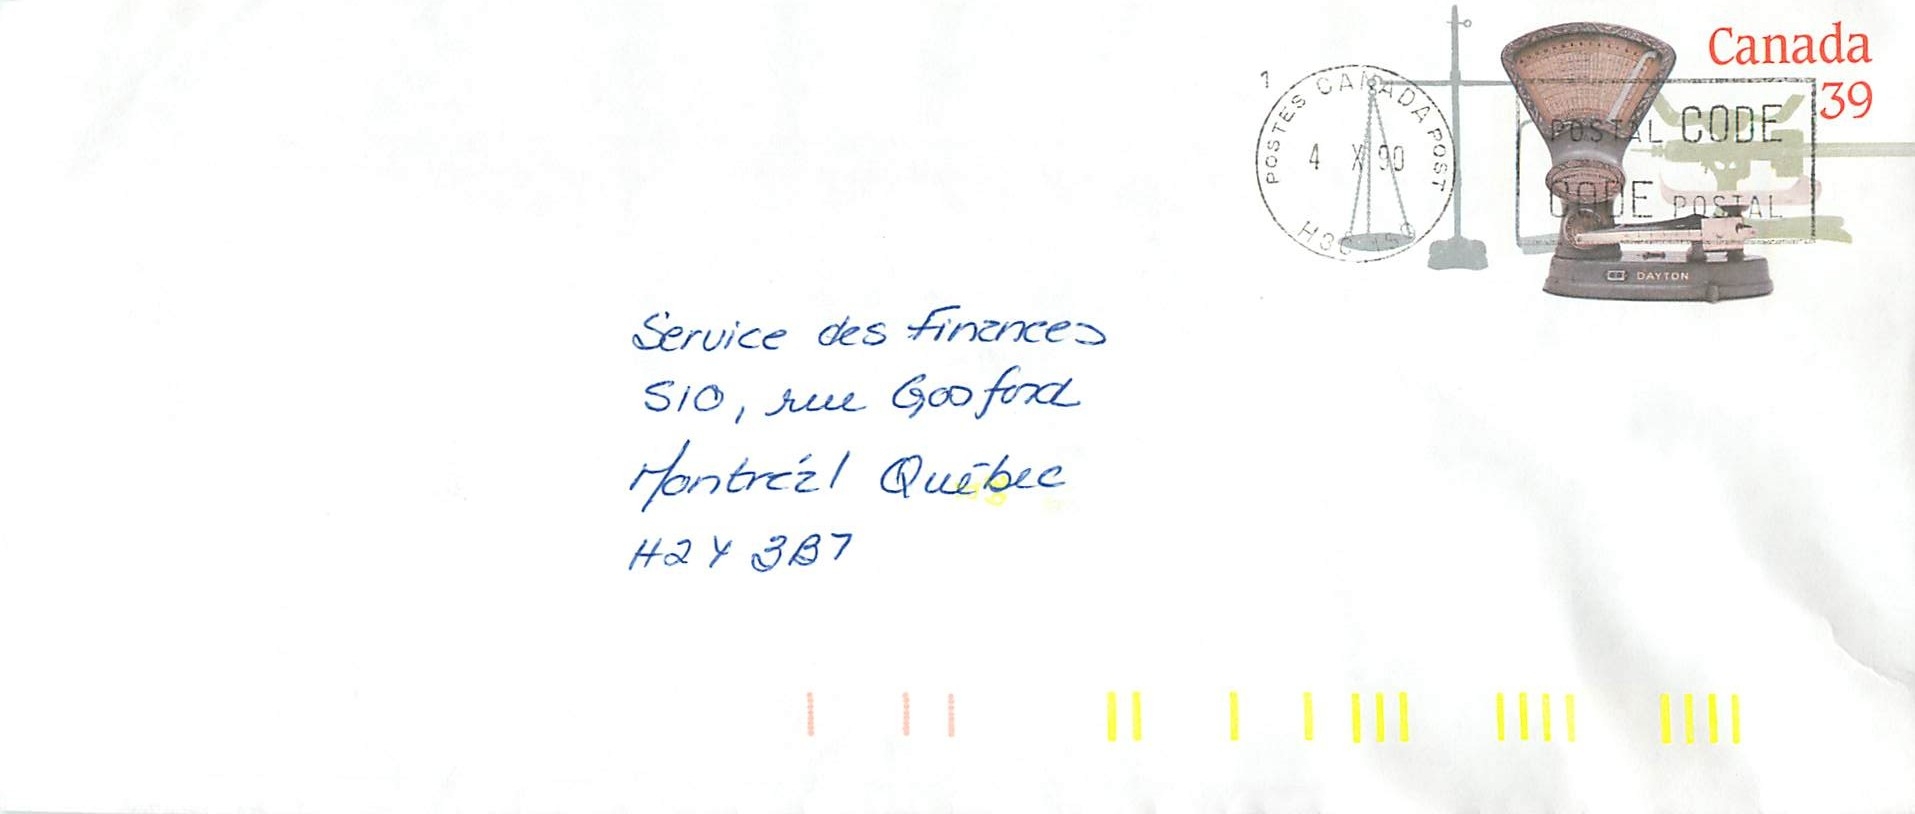 Canada
39
1
POSTES CANADA POST
4 X 90
H3C
POSTAL CODE
CODE POSTAL
DAYTON
Service des Finances
510, rue Gosford
Montréal Québec
H2Y 3B7